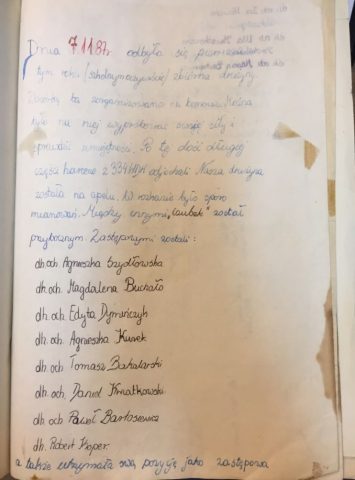 Dnia 7.11.87r odbyła się pierwsza w
tym roku (szkolnym oczywiście) zbiórka drużyny.
Zbiórkę tą zorganizowano na Można
było na niej wypróbować swoje siły i
sprawdzić umiejętności. Po tej dość długiej
części harcerze z odjechali. Nasza drużyna
została na apelu. W rozkazie było sporo
mianowań. Między innymi „Czubek" został
przybocznym. Zastępowymi zostali:
dh. och. Agnieszka Szydłowska
dh. och. Magdalena Buchało
dh. och. Edyta Dymińczyh
dh. och. Agnieszka Kusek
dh. och. Tomasz Bakalarski
dh. och. Daniel Kwiatkowski
dh. och. Paweł Bartosiewicz
dh. Robert Koper.
a także utrzymała swą pozycję jako zastępowa